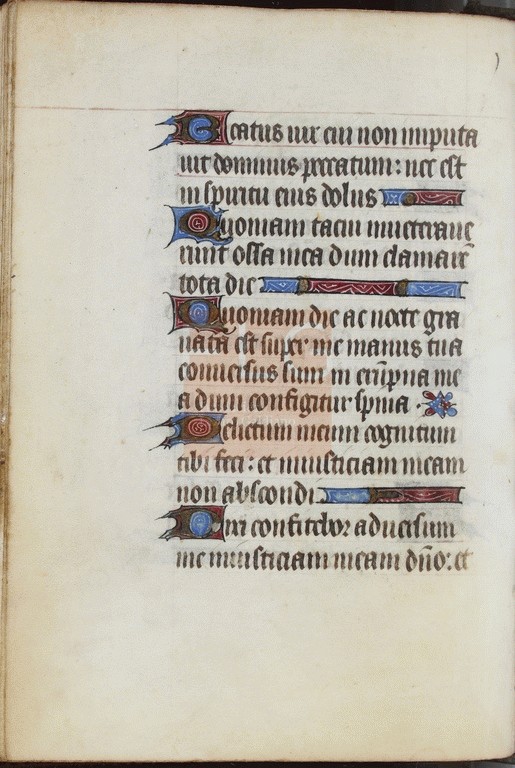 Beatus vir cui non imputa
vit dominus peccatum: nec est
in spiritu eius dolus
Quoniam tacui inveterave
runt ossa mea dum clamarē
tota die
Quoniam die ac nocte gra
vata est super me manus tua
conversus sum in erūpna me
a dum configitur spina
Delictum meum cognitum
tibi feci: et iniusticiam meam
non abscondi
Dixi confitebor adversum
me iniusticiam meam dn̄o: et